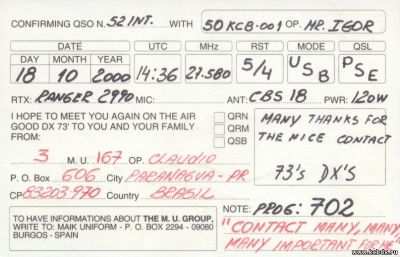 CONFIRMING QSO N. 52 INT. WITH 50KCB·001 OP. MR. IGOR
DATE UTC MHz RST MODE QSL
DAY MONTH YEAR
18 10 2000 14:36 27.580 5/4 USB PSE
RTX: RANGER 2990 MIC: ANT: CBS 18 PWR: 120W
I HOPE TO MEET YOU AGAIN ON THE AIR
GOOD DX 73' TO YOU AND YOUR FAMILY
FROM:
QRN
QRM
QSB
MANY THANKS FOR
THE NICE CONTACT
73'S DX'S
3 M. U. 167 OP. CLAUDIO
P. O. Box 606 City PARANAGUA - PR
CP 83203.970 Country BRASIL
NOTE: PROG: 702
TO HAVE INFORMATIONS ABOUT THE M. U. GROUP,
WRITE TO: MAIK UNIFORM - P. O. BOX 2294 - 09080
BURGOS - SPAIN
"CONTACT MANY, MANY,
MANY IMPORTANT FOR ME"
www.kcbdx.ru